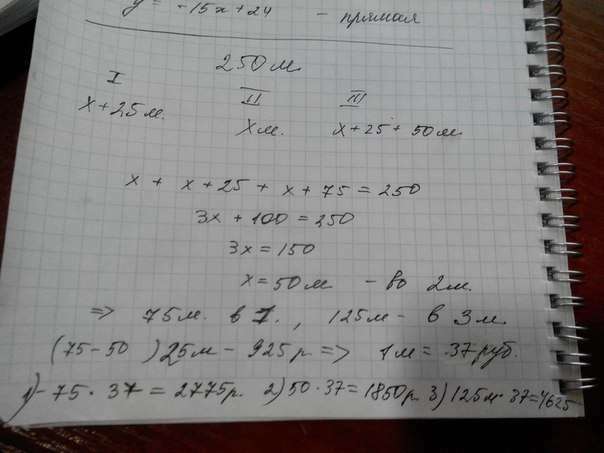 y = -15x+24 - прямая
250 м.
I II III
x+25м. xм. x+25+50м
x + x+25 + x+75 = 250
3x + 100 = 250
3x = 150
x = 50м - во 2м.
=> 75м. в 1., 125м - в 3м.
(75-50) 25м - 925р => 1м = 37руб.
1)- 75·37 = 2775р. 2) 50·37 = 1850р 3) 125м·37=4625